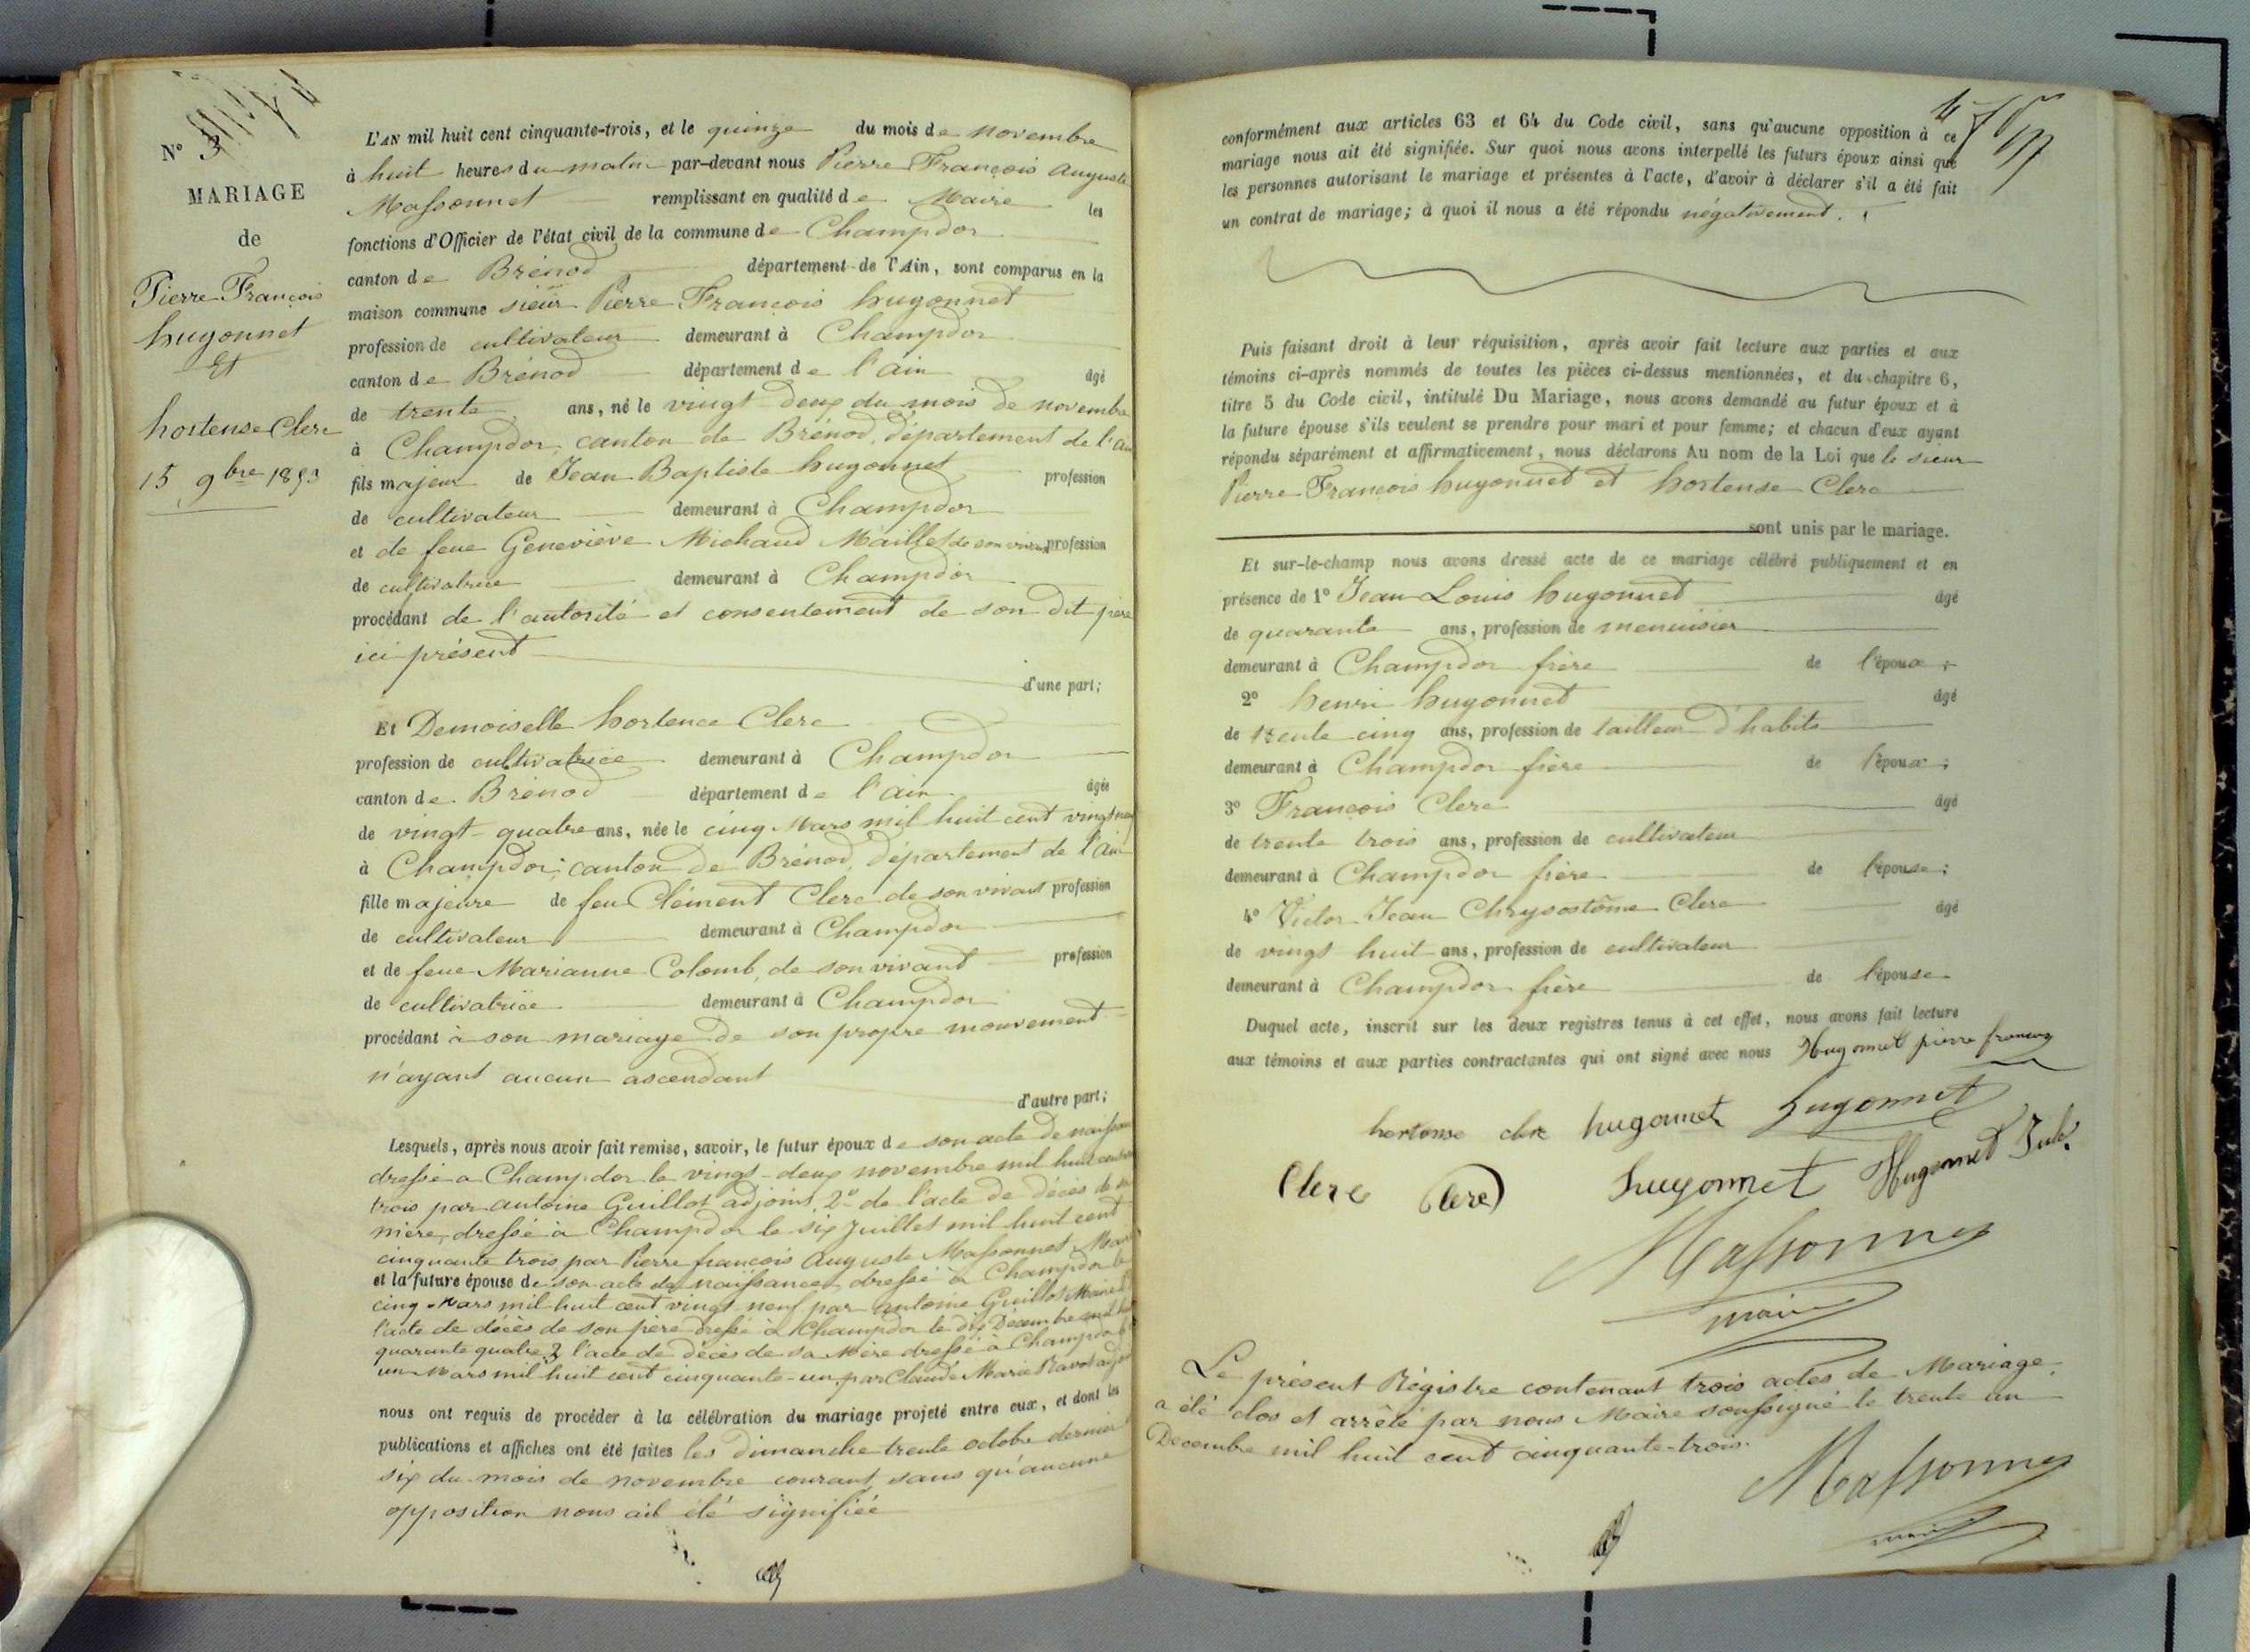 N° 3
MARIAGE
de
Pierre François
hugonnet
Et
hortense Clerc
15 9bre 1853
L'AN mil huit cent cinquante-trois, et le quinze du mois de novembre
à huit heures du matin par-devant nous Pierre François Auguste
Massonnet remplissant en qualité de Maire les
fonctions d'Officier de l'état civil de la commune de Champdor
canton de Brénod département de l'Ain, sont comparus en la
maison commune sieur Pierre François hugonnet
profession de cultivateur demeurant à Champdor
canton de Brénod département de l'ain âgé
de trente ans, né le vingt deux du mois de novembre
à Champdor, canton de Brénod, département de l'ain
fils majeur de Jean Baptiste hugonnet profession
de cultivateur demeurant à Champdor
et de feue Geneviève Michaud Maillet de son vivant profession
de cultivatrice demeurant à Champdor
procédant de l'autorité et consentement de son dit père
ici présent
d'une part;
Et Demoiselle hortence Clerc
profession de cultivatrice demeurant à Champdor
canton de Brénod département de l'ain âgée
de vingt-quatre ans, née le cinq Mars mil huit cent vingt neuf
à Champdor; canton de Brénod, département de l'ain
fille majeure de feu Clément Clerc de son vivant profession
de cultivateur demeurant à Champdor
et de feue Marianne Colomb, de son vivant profession
de cultivatrice demeurant à Champdor
procédant à son mariage de son propre mouvement
n'ayant aucun ascendant
d'autre part;
Lesquels, après nous avoir fait remise, savoir, le futur époux de son acte de naissance
dressé a Champdor le vingt-deux novembre mil huit cent
trois par antoine Guillot adjoint, 2° de l'acte de décès de sa
mère, dressé à Champdor le six Juillet mil huit cent
cinquante trois par Pierre françois Auguste Massonnet, Maire
et la future épouse de son acte de naissance, dressé à Champdor le
cinq Mars mil huit cent vingt neuf par antoine Guillot Maire
l'acte de décès de son père dressé à Champdor le dix Décembre mil huit
quarante quatre 3 l'acte de décès de sa Mère dressé à Champdor le
un Mars mil huit cent cinquante-un par Claude Marie Ravot adjoint
nous ont requis de procéder à la célébration du mariage projeté entre eux, et dont les
publications et affiches ont été faites les dimanche trente octobre dernier
six du mois de novembre courant, sans qu'aucune
opposition nous ait été signifiée
4
conformément aux articles 63 et 64 du Code civil, sans qu'aucune opposition à ce
mariage nous ait été signifiée. Sur quoi nous avons interpellé les futurs époux ainsi que
les personnes autorisant le mariage et présentes à l'acte, d'avoir à déclarer s'il a été fait
un contrat de mariage; à quoi il nous a été répondu négativement.
Puis faisant droit à leur réquisition, après avoir fait lecture aux parties et aux
témoins ci-après nommés de toutes les pièces ci-dessus mentionnées, et du chapitre 6,
titre 5 du Code civil, intitulé Du Mariage, nous avons demandé au futur époux et à
la future épouse s'ils veulent se prendre pour mari et pour femme; et chacun d'eux ayant
répondu séparément et affirmativement, nous déclarons Au nom de la Loi que le sieur
Pierre François hugonnet et hortense Clerc
sont unis par le mariage.
Et sur-le-champ nous avons dressé acte de ce mariage célébré publiquement et en
présence de 1° Jean Louis hugonnet âgé
de quarante ans, profession de menuisier
demeurant à Champdor frère de l'époux;
2° henri hugonnet âgé
de trente cinq ans, profession de tailleur d'habits
demeurant à Champdor frère de l'époux;
3° François Clerc âgé
de trente trois ans, profession de cultivateur
demeurant à Champdor frère de l'épouse;
4° Victor Jean Chrysostôme Clerc âgé
de vingt huit ans, profession de cultivateur
demeurant à Champdor frère de l'épouse
Duquel acte, inscrit sur les deux registres tenus à cet effet, nous avons fait lecture
aux témoins et aux parties contractantes qui ont signé avec nous Hugonnet pierre francois
hortense clerc hugonnet hugonnet
Clerc Clerc hugonnet Hugonnet
Massonnet
maire
Le présent Régistre contenant trois actes de Mariage
a été clos et arrêté par nous Maire soussigné le trente un
Decembre mil huit cent cinquante-trois.
Massonnet
maire